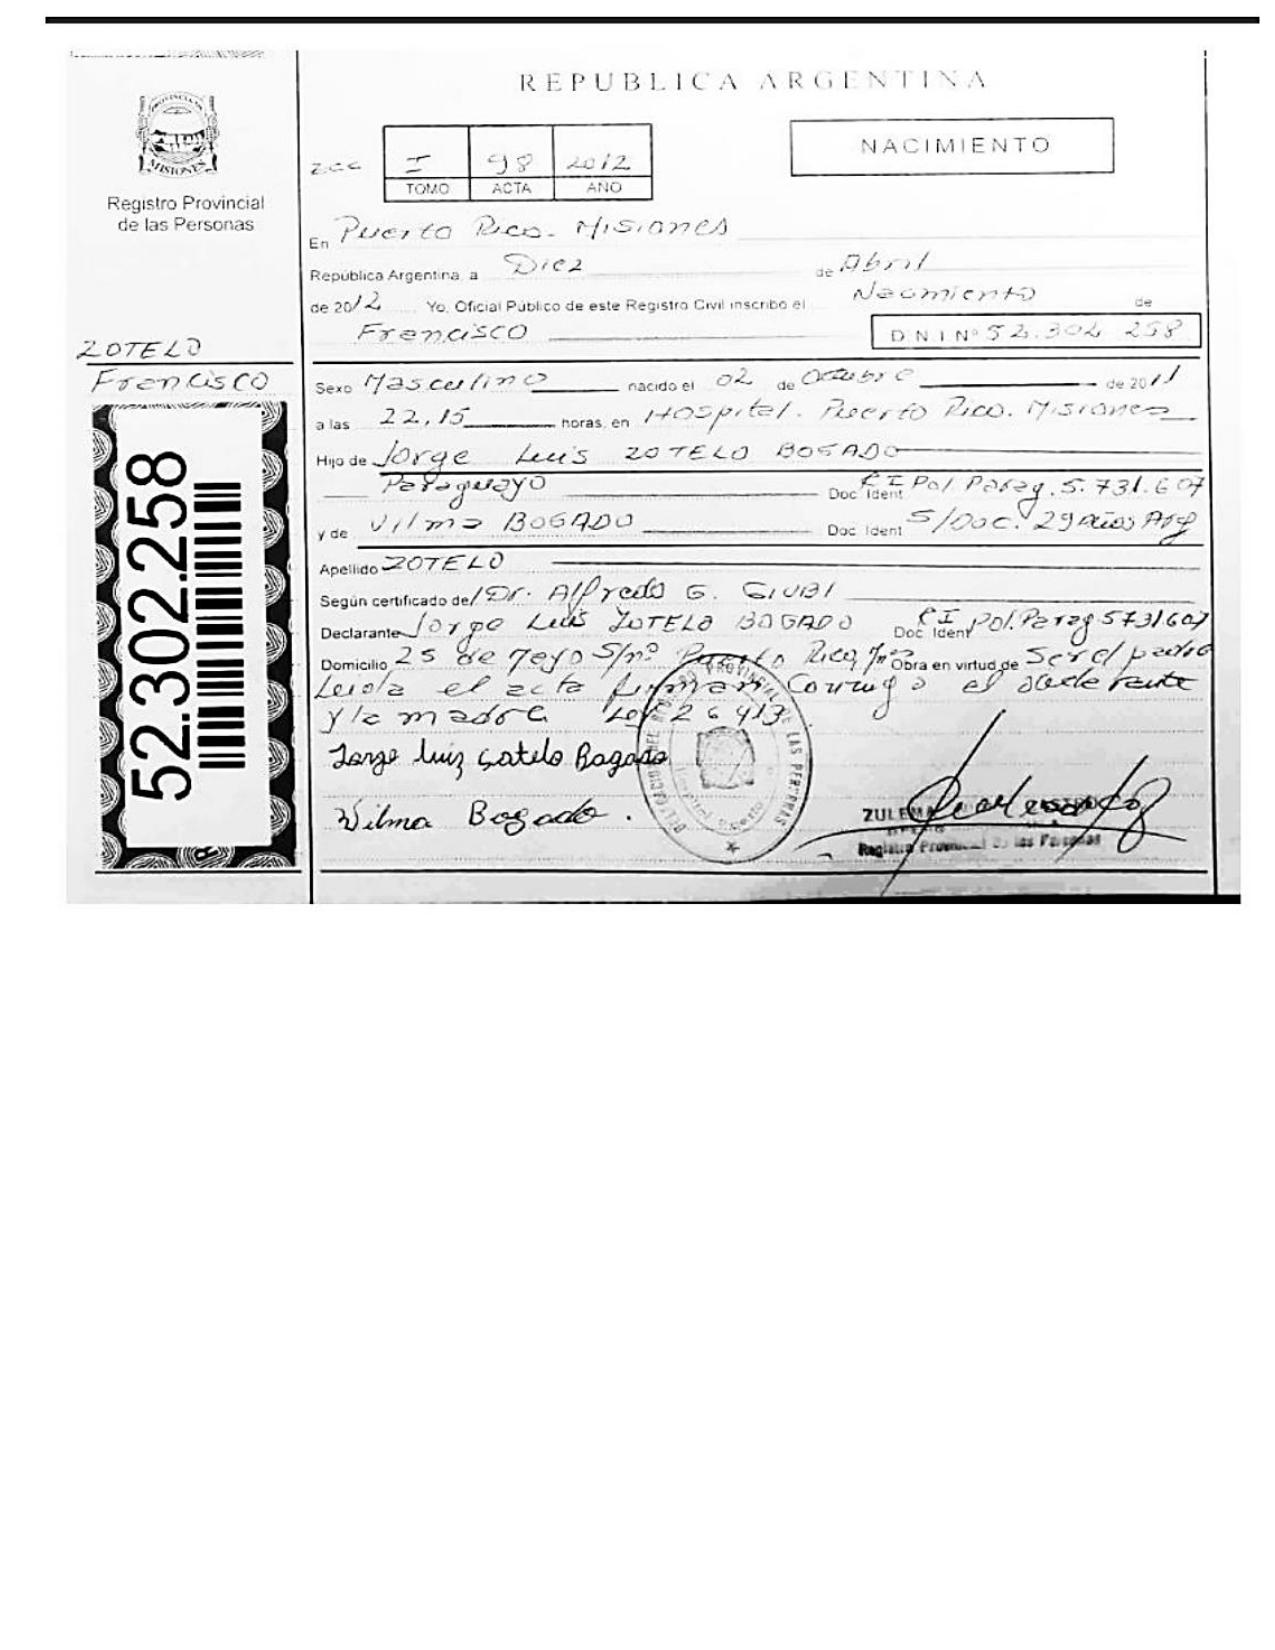 REPUBLICA ARGENTINA
PROVINCIA DE
MISIONES
Registro Provincial
de las Personas
I 98 2012
TOMO ACTA AÑO
NACIMIENTO
En Puerto Rico - Misiones
República Argentina, a Diez de Abril
de 2012 Yo, Oficial Público de este Registro Civil inscribo el Nacimiento de
Francisco D.N.I. Nº 52.302 258
ZOTELO
Francisco
52.302.258
Sexo Masculino nacido el 02 de Octubre de 2011
a las 22,15 horas, en Hospital. Puerto Rico. Misiones
Hijo de Jorge Luis ZOTELO BOGADO
Paraguayo Doc. Ident. Pol Parag. 5.731.607
y de Vilma BOGADO Doc. Ident S/Doc. 29 años Arg
Apellido ZOTELO
Según certificado de Dr. Alfredo G. GIUBI
Declarante Jorge Luis ZOTELO BOGADO Doc. Ident Pol. Parag 5731607
Domicilio 25 de Mayo S/nº Puerto Rico Obra en virtud de Ser el padre
Leida el acta firman Conmigo el
y la madre Ley 26413
Jorge luiz Sotelo Bogado
Wilma Bogado.
DEL REGISTRO PROVINCIAL DE LAS PERSONAS
ZULEMA
Registro Provincial de las Personas